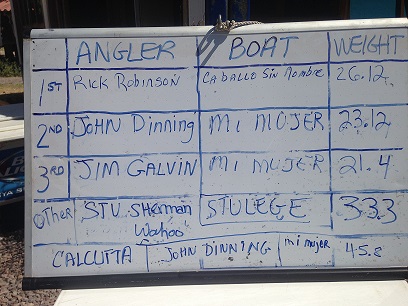 ANGLER BOAT WEIGHT
1ST Rick Robinson CABALLO Sin Nombre 26.12
2ND JOHN Dinning mi MUJER 23.12
3RD JIM GALVIN Mi MUJER 21.4
Other STU Sherman STULEGE 33.3
Wahoo
CALCUTTA JOHN DINNING mi mujer 45.8